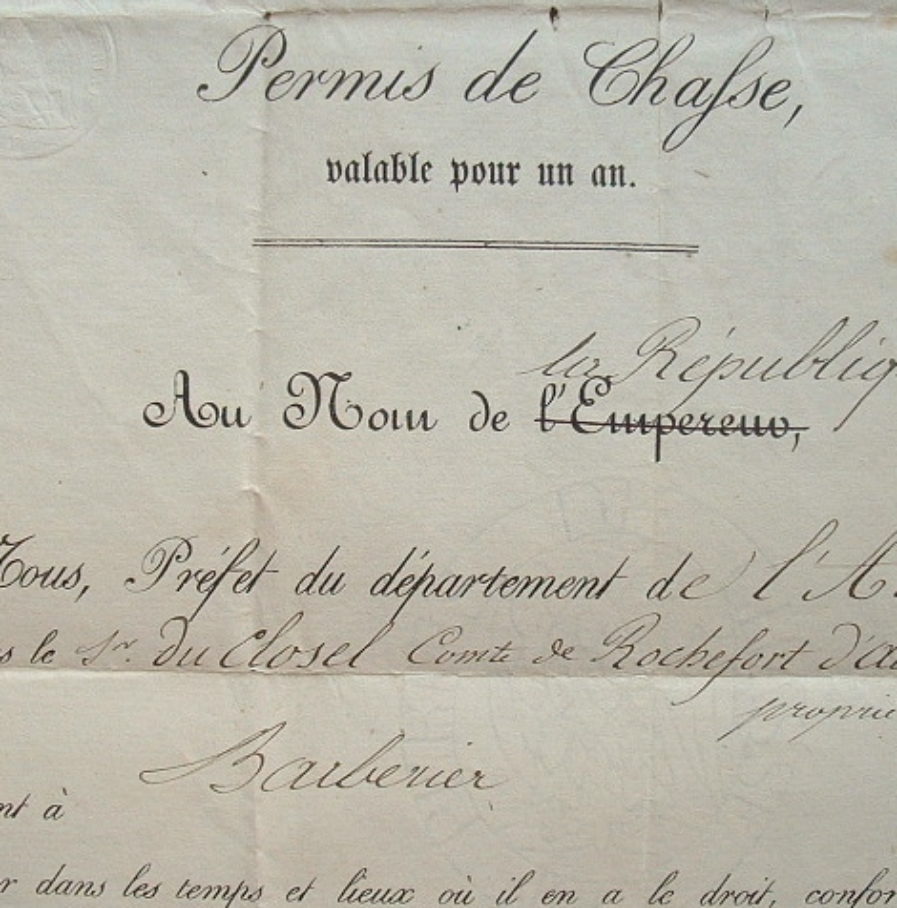 Permis de Chasse,
valable pour un an.
la Républiq
Au Nom de l'Empereur,
Nous, Préfet du département de l'A
s le Sr. Du Closel Comte de Rochefort d'a
proprié
Barberier
nt à
r dans les temps et lieux où il en a le droit, confor